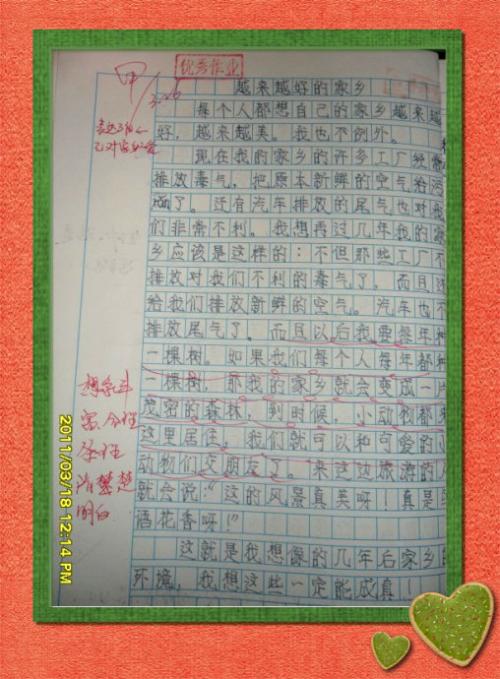 优秀作业
甲
越来越好的家乡
每个人都想自己的家乡越来越
好，越来越美。我也不例外。
现在我的家乡的许多工厂经常
排放毒气，把原本新鲜的空气给污
了。还有汽车排放的尾气也对我
们非常不利。我想再过几年我的家
乡应该是这样的：不但那些工厂不
排放对我们不利的毒气了，而且还
给我们排放新鲜的空气。汽车也不
排放尾气了。而且以后我要每年种
一棵树。如果我们每个人每年都种
一棵树，那我的家乡就会变成一片
茂密的森林，到时候，小动物都来
这里居住。我们就可以和可爱的小
动物们交朋友了。来这边旅游的人
就会说：“这的风景真美呀！真是
语花香呀！”
这就是我想像的几年后家乡的
环境，我想这些一定能成真！
清楚
明白
2011/03/18 12:14 PM